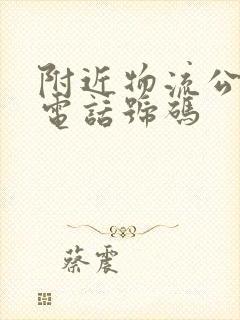 附近物流公
電話號碼
蔡震